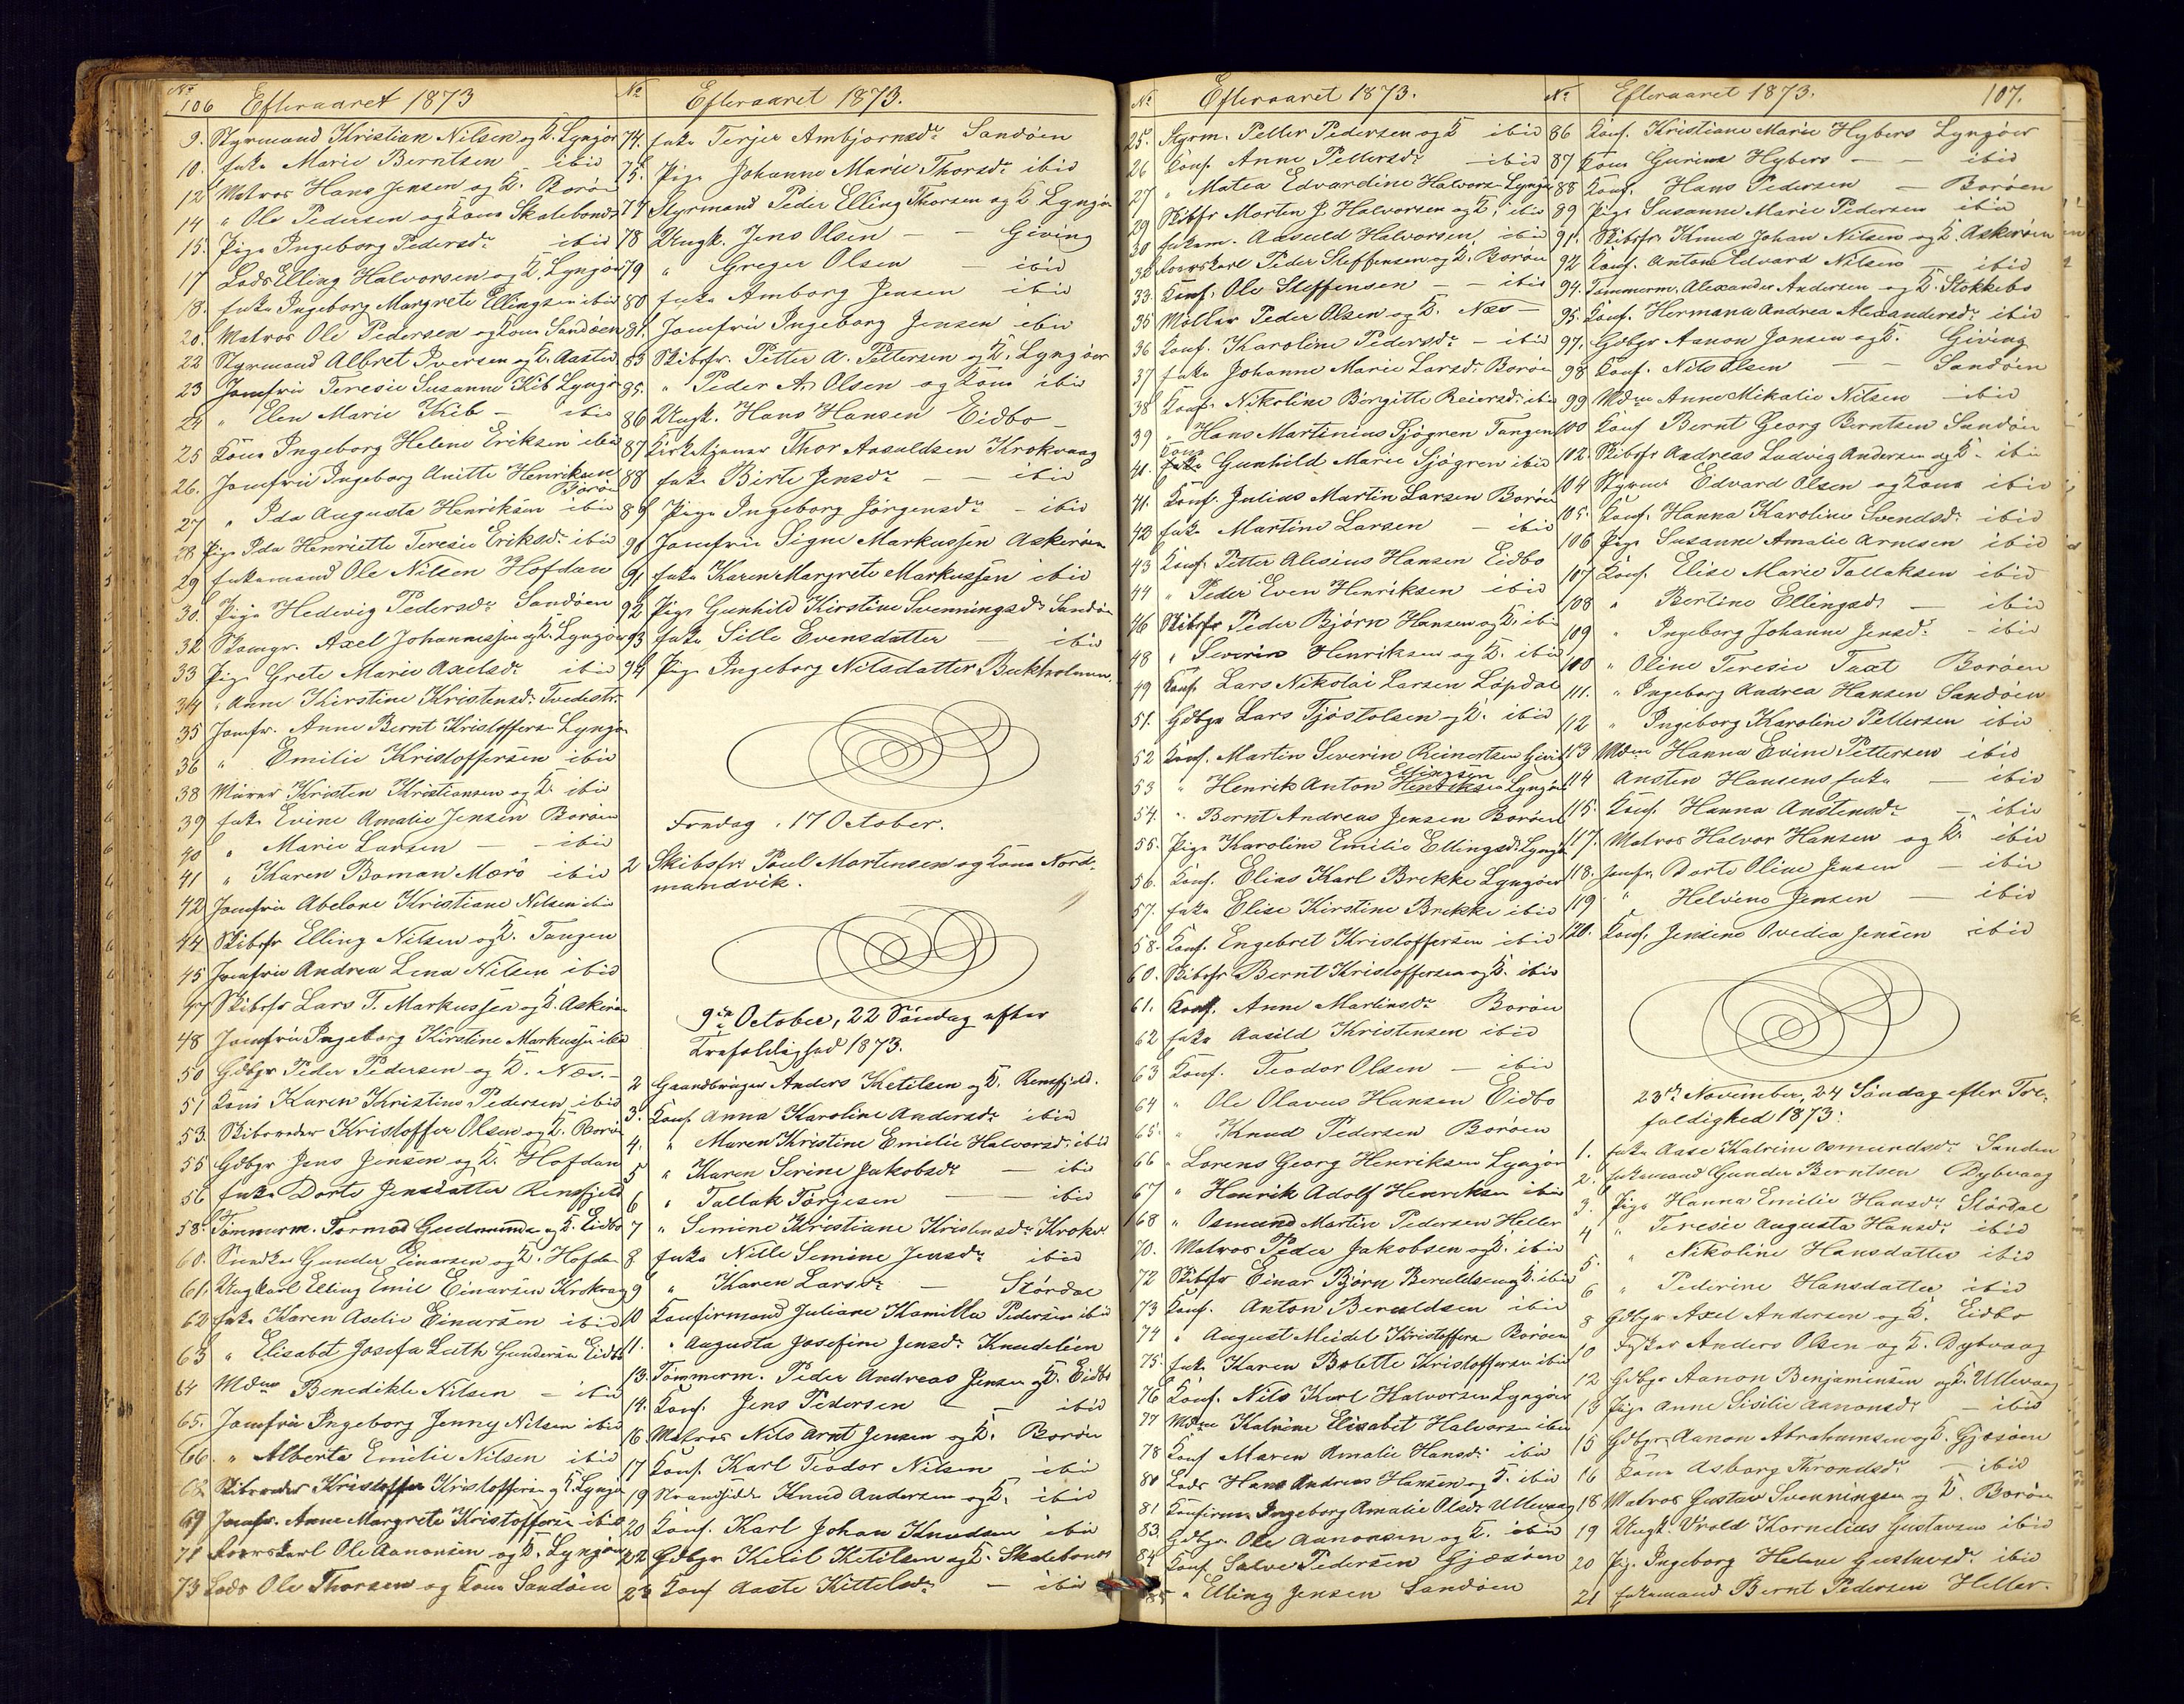 No
106 Efteraaret 1873
9. Styrmand Kristian Nilsen og K. Lyngør
10. Enke Marie Berntsen ibid
12 Matros Hans Jensen og K. Borøen
14 " Ole Pedersen og Kone Skatebonds
15. Pige Ingeborg Pedersdr ibid
17 Lods Elling Halvorsen og K. Lyngør
18. Enke Ingeborg Margrete Ellingsen ibid
20. Matros Ole Pedersen og Kone Sandøen
22 Styrmand Albret Iversen og K. Aasten
23 Jomfru Teresie Susanne Kib Lyngør
24 " Elen Marie Kib - ibid
25 Kone Ingeborg Helene Eriksen ibid
26. Jomfru Ingeborg Anitte Henriksen
Borøen
27 " Ida Augusta Henriksen ibid
28 Pige Ida Henriette Teresie Eriksdr ibid
29 Enkemand Ole Nilsen Hofdan
30. Pige Hedevig Pedersdr Sandøen
32 Skomgr. Axel Johannessen og K. Lyngør
33 Pige Grete Marie Axelsdr ibid
34 " Anne Kirstine Kristensdr Tvedestr.
35 Jomfr. Anne Bernt Kristoffersen Lyngør
36 " Emilie Kristoffersen ibid
38 Murer Kristen Kristiansen og K. ibid
39 Enke Evine Amalie Jensen Borøen
40 " Marie Larsen - - ibid
41 " Karen Boman Mærø ibid
42 Jomfru Abelone Kristiane Nilsen ibid
44 Skibsfr Elling Nilsen og K. Tangen
45 Jomfru Andrea Lena Nilsen ibid
47 Skibsfr Lars T. Markussen og K. Askerøen
48 Jomfru Ingeborg Kirstine Markussen ibid
50 Gdbgr Peder Pedersen og K. Næs. -
51 Kone Karen Kristine Pedersen ibid
53. Skibsreder Kristoffer Olsen og K. Borøen
55 Gdbgr Jens Jensen og K. Hofdan
56 Enke Dorte Jensdatter Rensfjeld
58. Tømmerm. Tormod Gudmunds. og K. Eidbo
60. Gunder Einarsen og K. Hofdan
61. Ungkarl Elling Emil Einarsen Krokvaag
62 Enke Karen Aselie Einarsen ibid
63 " Elisabet Josefa Luth Gundersen Eidbo
64 Mdme Benedikte Nilsen - ibid
65. Jomfru Ingeborg Jenny Nilsen ibid
66. " Alberta Emilie Nilsen ibid
68. Skibsreder Kristoffer Kristoffersen og K. Lyngør
69 Jomfr. Anne Margrete Kristoffersen ibid
71 Ole Aanonsen og K. Lyngør
73 Lods Ole Thorsen og Kone Sandøen
No
Efteraaret 1873.
74. Enke Terjer Ambjornsdr Sandøen
75. Pige Johanne Marie Thorsdr ibid
77 Styrmand Peder Elling Thorsen og K. Lyngør
78 Ungk. Jens Olsen - - Giving
79 " Greger Olsen ibid
80 Enke Amborg Jensen ibid
81. Jomfru Ingeborg Jensen ibid
83 Skibsfr. Petter A. Pettersen og K. Lyngøer
85. " Peder A. Olsen og Kone ibid
86 Ungk. Hans Hansen Eidbo -
87 Kirketjener Thor Aasuldsen Krokvaag
88 Enke Birte Jensdr - - ibid
89 Pige Ingeborg Jørgensdr - ibid
90 Jomfru Signe Markussen Askerøen
91 Enke Karen Margrete Markussen ibid
92 Pige Gunhild Kirstine Svenningsdr Sandøen
93 Enke Sille Evensdatter - ibid
94 Pige Ingeborg Nilsdatter Buckholmen.
Fredag, 17 October.
2 Skibsfr. Poul Mortensen og Kone Nord-
mandvik.
9de October, 22 Søndag efter
Trefoldighed 1873.
2 Gaardbruger Anders Ketilsen og K. Rensfjeld.
3. Konf. Anna Karoline Andersdr ibid
4. " Maren Kristine Emilie Halvorsdr. ibid
5 " Karen Serine Jakobsdr - ibid
6 " Tallak Torjesen - - ibid
7 " Semine Kristiane Kristensdr Krokv.
8 Enke Nille Semine Jensdr ibid
9 " Karen Larsdr - Størdal
10 Konfirmand Juliane Kamilla Pedersen ibid
11. " Augusta Josefine Jensdr Knudeléen
13. Tømmerm. Peder Andreas Jensen og K. Eidbo
14. Konf. Jens Pedersen - - ibid
16. Matros Nils Arnt Jensen og K. Borøen
17 Konf. Karl Teodor Nilsen ibid
19 Strandsidder Knud Andersen og K. ibid
20 Konf. Karl Johan Knudsen ibid
22 Gdbgr Ketil Ketilsen og K. Skatebonds
23 Konf Aaste Kittelsdr - ibid
No
Efteraaret 1873.
25. Styrm. Petter Pedersen og K ibid
26 Konf. Anne Pettersdr - ibid
27 " Matea Edvardine Halvors. Lyngør
29 Skibsfr Morten J. Halvorsen og K. ibid
30 Enkem. Aasuld Halvorsen ibid
32 Peder Steffensen og K. Borøen
33. Konf. Ole Steffensen - - ibid
35 Møller Peder Olsen og K. Næs -
36 Konf. Karoline Pedersdr - ibid
37 Enke Johanne Marie Larsdr. Borøen
38 Konf. Nikoline Birgitte Reiersdr. ibid
39 " Hans Martinius Sjögren Tangen
Kone
40. Enke Gunhild Marie Sjögren ibid
41. Konf. Julius Martin Larsen Borøen
42 Enke Martine Larsen - ibid
43 Konf. Petter Alesius Hansen Eidbo
44 " Peder Even Henriksen ibid
46 Skibsfr Peder Bjørn Hansen og K. ibid
48 " Severin Henriksen og K. ibid
49 Konf. Lars Nikolai Larsen Løpdal
51. Gdbgr Lars Tjöstolsen og K. ibid
52 Konf. Martin Severin Reinertsen Giving
Ellingsen
53 " Henrik Anton Henriksen Lyngør
54. " Bernt Andreas Jensen Borøen
55. Pige Karoline Emilie Ellingsdr. Lyngør
56. Konf. Elias Karl Brekke Lyngøer
57. Enke Elise Kirstine Brekke ibid
58. Konf. Engebret Kristoffersen ibid
60. Skibsfr Bernt Kristoffersen og K. ibid
61. Konf. Anne Martinsdr Borøen
62 Enke Aasild Kristensen ibid
63 Konf. Teodor Olsen - ibid
64 " Ole Olavus Hansen Eidbo
65. " Knud Pedersen Borøen
66 " Lorens Georg Henriksen Lyngør
67 " Henrik Adolf Henriksen ibid
168 " Osmund Martin Pedersen Heller
70. Matros Peder Jakobsen og K. ibid
72 Skibsfr Einar Bjørn Beruldsen og K. ibid
73 Konf. Anton Beruldsen ibid
74 " August Meidel Kristoffers. Borøen
75. Enke Karen Bolette Kristoffersen ibid
76 Konf. Nils Karl Halvorsen Lyngøer
77 Mdme Katrine Elisabet Halvorsen ibid
78 Konf Maren Amalie Hansdr. ibid
80 Lods Hans Andreas Hansen og K. ibid
81 Konfirm. Ingeborg Amalie Olsdr Ullevaag
83. Gdbgr Ole Aanonsen og K. ibid
84 Konf. Salve Pedersen Gjæsøen
85 " Elling Jensen Sandøen
No
Efteraaret 1873. 107.
86 Konf. Kristiane Marie Hybers Lyngøer
87 Kone Gurine Hybers - - ibid
88 Konf. Hans Pedersen - Borøen
89 Pige Susanne Marie Pedersen ibid
91. Skibsfr. Knud Johan Nilsen og K. Askerøen
92 Konf. Anton Edvard Nilsen - ibid
94. Tømmerm. Alexander Andersen og K. Stokkebo
95. Konf. Hermana Andrea Alexandersdr ibid
97. Gdbgr Aanon Jansen og K. Giving
98 Konf. Nils Olsen - - Sandøen
99 Mdme Anne Mikalie Nilsen ibid
100 Konf Bernt Georg Berntsen Sandøen
102. Skibsfr Andreas Ludvig Andersen og K. ibid
104 Styrmd Eidvard Olsen og Kone ibid
105. Konf. Hanna Karoline Svendsdr ibid
106 Pige Susanne Amalie Arnesen ibid
107 Konf. Elise Marie Tallaksen ibid
108 " Bertine Ellingsdr - ibid
109 " Ingeborg Johanne Jensdr - ibid
100 " Oline Teresie Taxt Borøen
111. " Ingeborg Andrea Hansen Sandøen
112 " Ingeborg Karoline Pettersen ibid
113 Mdme Hanna Evine Pettersen ibid
114 Ansten Hansens Enke - ibid
115. Konf. Hanna Anstensdr - ibid
117. Matros Halvor Hansen og K. ibid
118. Jomfr. Dorte Oline Jensen - ibid
119 " Helvine Jensen - ibid
120. Konf. Jensine Ovedia Jensen ibid
23de November, 24 Søndag efter Tre-
foldighed 1873:
1. Enke Aase Katrine Osmundsdr Sanden
2. Enkemand Gunder Berntsen Dybvaag
3. Pige Hanna Emilie Hansdr Størdal
4 " Teresie Augusta Hansdr ibid
5. " Nikoline Hansdatter ibid
6 " Pederine Hansdatter ibid
8 Gdbgr Axel Andersen og K. Eidbo
10 Fisker Anders Olsen og K. Dybvaag
12 Gdbgr Aanon Benjaminsen og K. Ullevaag
13 Pige Anne Sisilie Aanonsdr - ibid
15 Gdbgr Aanon Abrahamsen og K. Gjæsøen
16 Kone Asborg Throndsdr - ibid
18 Matros Gustav Svenningsen og K. Borøen
19 Ungk. Vrold Kornelius Gustavsen ibid
20 Pige Ingeborg Helene Gustavsdr ibid
21 Enkemand Bernt Pedersen Heller.